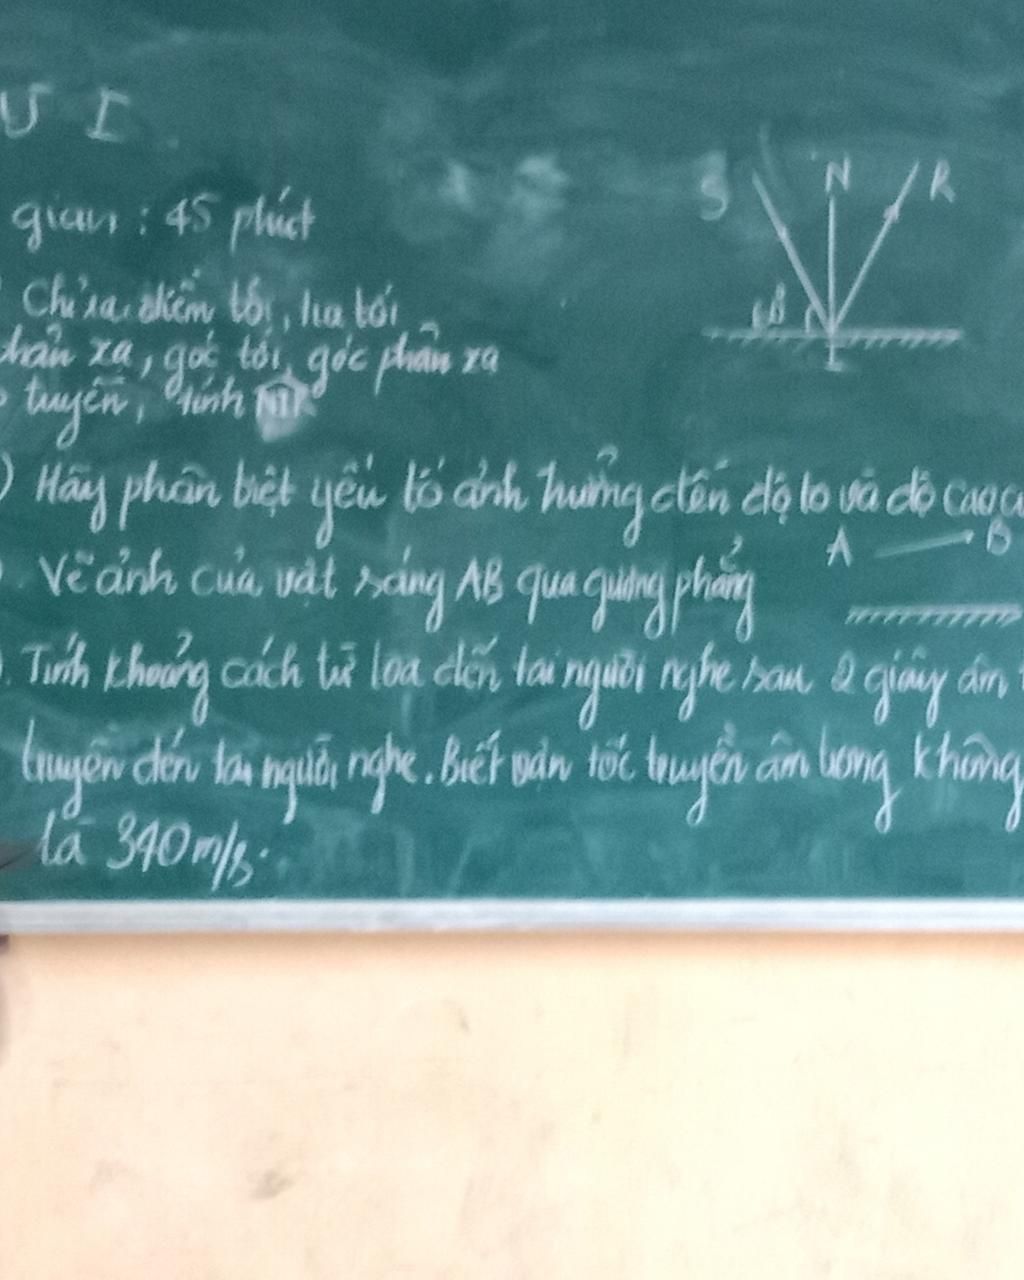 U I
gian : 45 phút
S N R
Chỉ ra điểm tới, tia tới
phản xạ, góc tới, góc phản xạ
I
tuyến, tính
) Hãy phân biệt yếu tố ảnh hưởng đến độ to và độ cao
A B
Vẽ ảnh của vật sáng AB qua gương phẳng
. Tính khoảng cách từ loa đến tai người nghe sau 2 giây âm
truyền đến tai người nghe. Biết vận tốc truyền âm trong không
là 340 m/s.